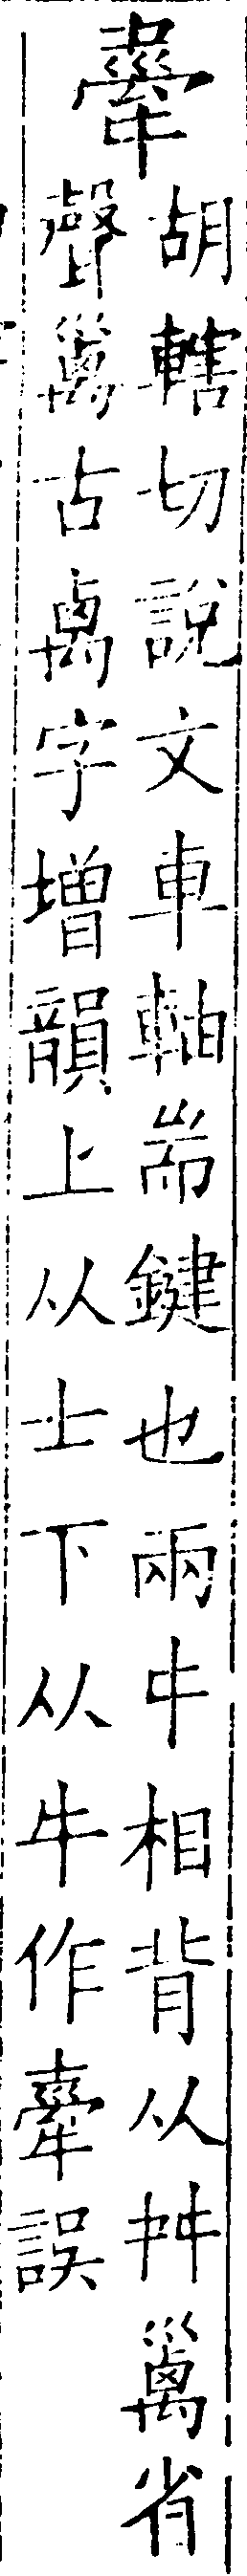 舝
胡轄切說文車軸耑鍵也兩㐄相背从舛𥜽省
聲𥜽古禼字增韻上从士下从牛作舝誤